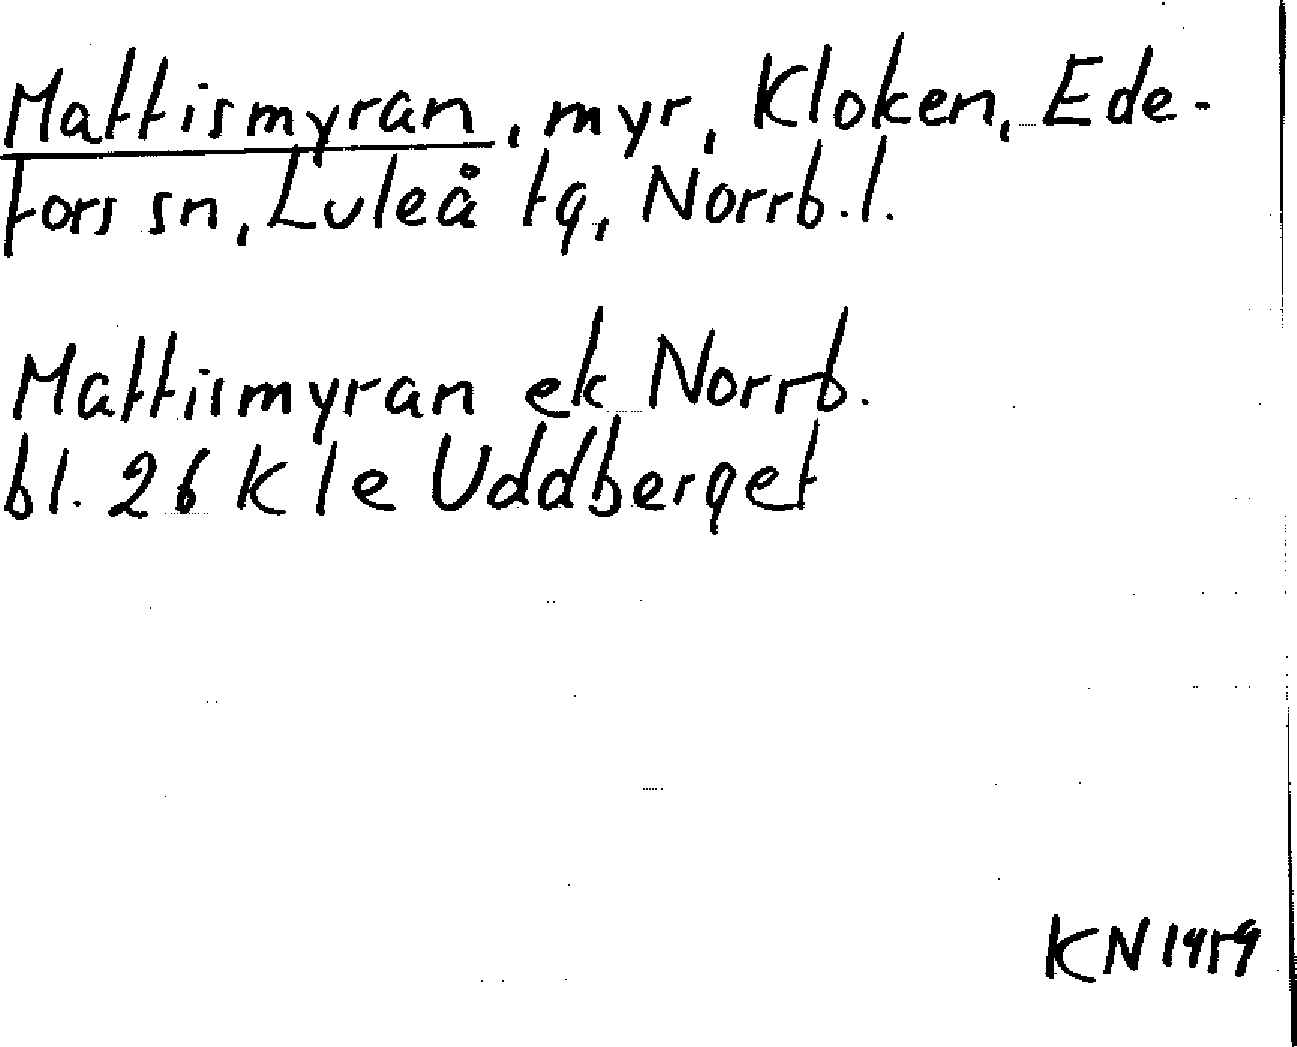 Mattismyran, myr, Kloken, Ede-
fors sn, Luleå tg, Norrb. l.
Mattismyran ek Norrb.
bl. 26 K 1 e Uddberget
KN 1959